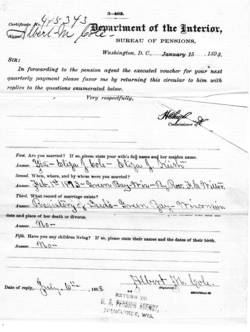 3-402.
Certificate No. 415343
Department of the Interior,
Name, Albert M. Cole
BUREAU OF PENSIONS,
Washington, D. C., January 15, 1898.
SIR:
In forwarding to the pension agent the executed voucher for your next
quarterly payment please favor me by returning this circular to him with
replies to the questions enumerated below.
Very respectfully,
Commissioner.
First. Are you married? If so, please state your wife's full name and her maiden name.
Answer. Yes - Eliza Cole - Eliza
Second. When, where, and by whom were you married?
Answer. Feb. 1st Green Bay Wis - by Rev.
Third. What record of marriage exists?
Answer. Registry of Deeds - Green Bay - Wisconsin
date and place of her death or divorce.
Answer. No -
Fifth. Have you any children living? If so, please state their names and the dates of their birth.
Answer. No -
Date of reply, July 1898
Albert M. Cole
RETURN TO
U. S. PENSION AGENCY
MILWAUKEE, WIS.